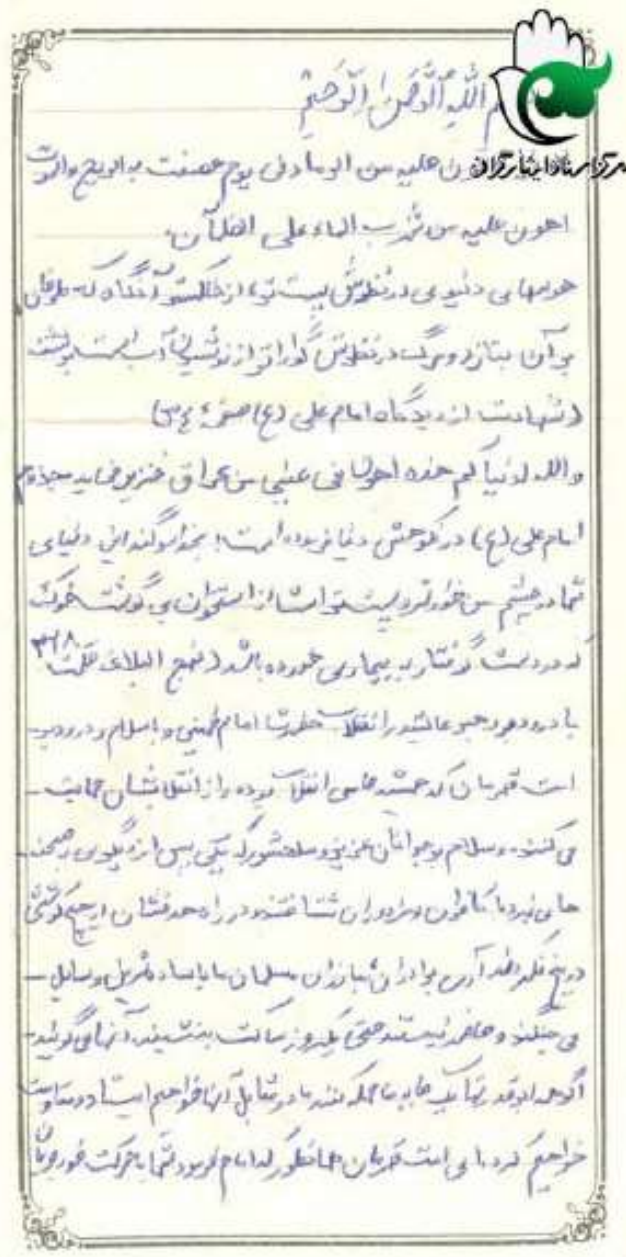 الله الرحمن الرحیم
مرکز اسناد ایثارگران
علیه من الرماد فی یوم عصفت به الریح والموت
اهون علیه من شرب الماء علی الظمآن
هومهای دنیوی در نظرش پست تر از خاکستر آنگاه که طوفان
بر آن بتازد و مرگ در نظرش گواراتر از نوشیدن آب است بر تشنه
(شهادت از دیدگاه امام علی (ع) صفحه
والله لدنیاکم هذه اهون فی عینی من عراق خنزیر فی ید مجذوم
امام علی (ع) در نکوهش دنیا فرموده است: بخدا سوگند این دنیای
شما در چشم من خوردتر و پست تر است از استخوان بی گوشت خوک
که در دست گرفتار به بیماری خورده باشد (نهج البلاغه حکمت
با درود بر رهبر عالیقدر انقلاب حضرت امام خمینی و با سلام و درود بر
امت قهرمان که همیشه حامی انقلاب بوده و از انقلابشان حمایت
می کنند. و سلام بر جوانان عزیز و سلحشور که یکی پس از دیگری
های نبرد با کافران و مزدوران شتافتند و در راه هدفشان از هیچ کوششی
دریغ نکردند آری برادران مبارزان مسلمان ما با
می جنگند و حاضر نیستند حتی یکروز ساکت بنشینند، آنها می گویند
اگر هر اندازه به ما حمله کنند ما در مقابل آنها خواهیم ایستاد و مقاومت
خواهیم کرد. ای امت قهرمان همانطور که امام فرمود شما با حرکت خود